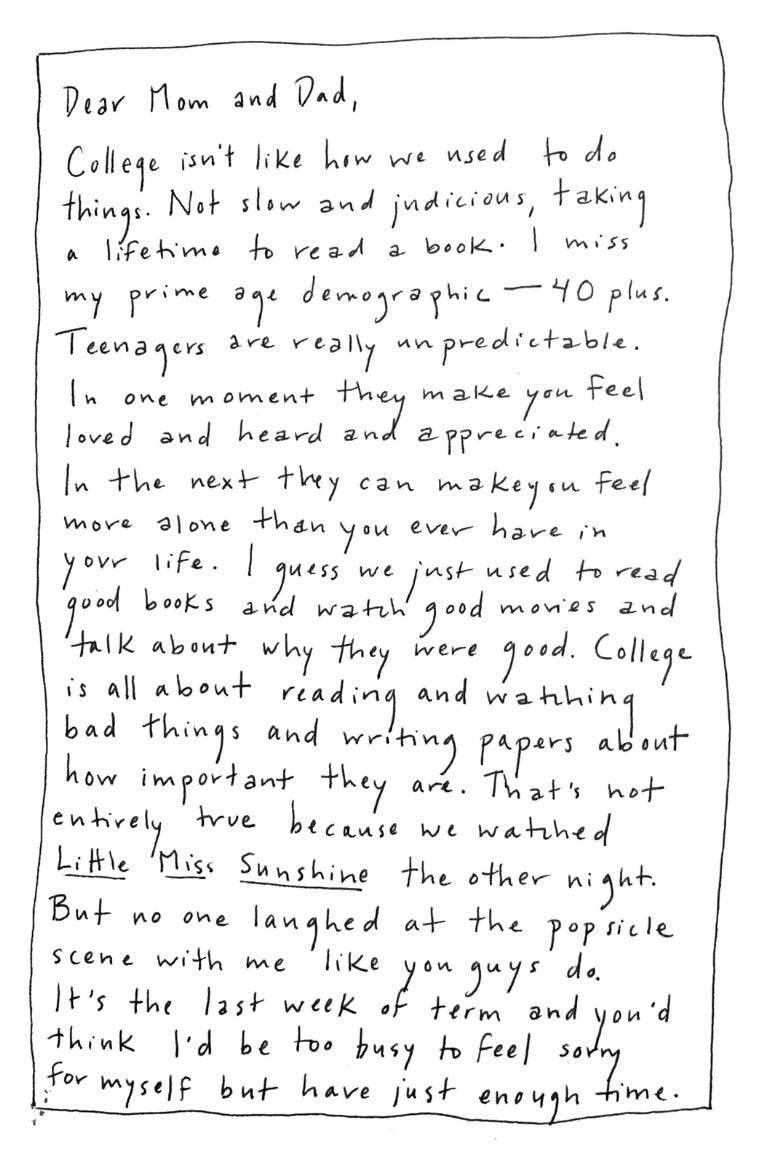 Dear Mom and Dad,
College isn't like how we used to do
things. Not slow and judicious, taking
a lifetime to read a book. I miss
my prime age demographic — 40 plus.
Teenagers are really unpredictable.
In one moment they make you feel
loved and heard and appreciated.
In the next they can make you feel
more alone than you ever have in
your life. I guess we just used to read
good books and watch good movies and
talk about why they were good. College
is all about reading and watching
bad things and writing papers about
how important they are. That's not
entirely true because we watched
Little Miss Sunshine the other night.
But no one laughed at the popsicle
scene with me like you guys do.
It's the last week of term and you'd
think I'd be too busy to feel sorry
for myself but have just enough time.